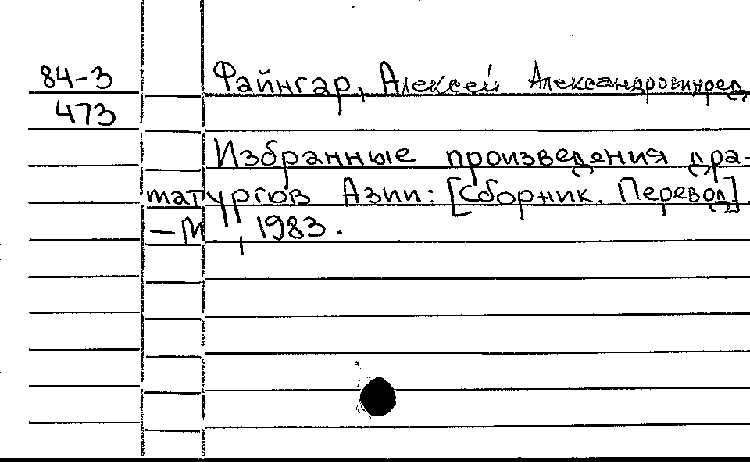 84-3 Файнгар, Алексей Александрович, ред.
473
Избранные произведения дра-
матургов Азии: [Сборник. Перевод].
– М., 1983.